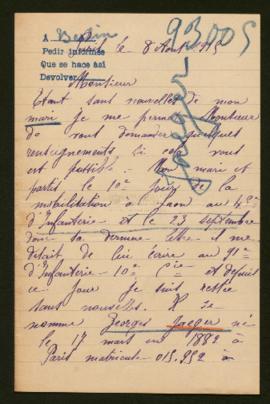 A Berlin
93.005
Pedir informes
le 8 Août 1915
Que se hace asi
Devolver
Monsieur
Etant sans nouvelles de mon
mari je me permets Monsieur
de vous demander quelques
renseignements si cela vous
est possible. Mon mari est
parti le 10e jour de la
mobilisation à Laon au 4
d'Infanterie et le 23 septembre
dans sa dernière lettre il me
disait de lui écrire au 91e
d'Infanterie 10e Cie et depuis
ce jour je suis restée
sans nouvelles. Il se
nomme Georges Jaeger né
le 17 mars en 1882 à
Paris matricule 015.952 à
Jaeger